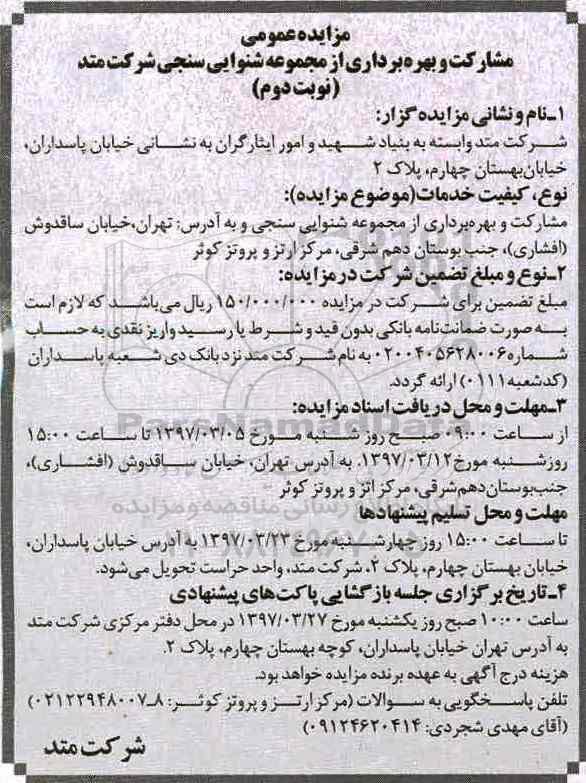 مزایده عمومی
مشارکت و بهره‌برداری از مجموعه شنوایی سنجی شرکت متد
(نوبت دوم)
۱ـ نام و نشانی مزایده گزار:
شرکت متد وابسته به بنیاد شهید و امور ایثارگران به نشانی خیابان پاسداران،
خیابان بهستان چهارم، پلاک ۲
نوع، کیفیت خدمات (موضوع مزایده):
مشارکت و بهره‌برداری از مجموعه شنوایی سنجی و به آدرس: تهران، خیابان ساقدوش
(افشاری)، جنب بوستان دهم شرقی، مرکز ارتز و پروتز کوثر
۲ـ نوع و مبلغ تضمین شرکت در مزایده:
مبلغ تضمین برای شرکت در مزایده ۱۵۰/۰۰۰/۰۰۰ ریال می‌باشد که لازم است
به صورت ضمانت‌نامه بانکی بدون قید و شرط یا رسید واریز نقدی به حساب
شماره ۰۲۰۰۴۰۵۶۲۸۰۰۶ به نام شرکت متد نزد بانک دی شعبه پاسداران
(کد شعبه ۰۱۱۱) ارائه گردد.
۳ـ مهلت و محل دریافت اسناد مزایده:
از ساعت ۰۹:۰۰ صبح روز شنبه مورخ ۱۳۹۷/۰۳/۰۵ تا ساعت ۱۵:۰۰
روز شنبه مورخ ۱۳۹۷/۰۳/۱۲. به آدرس تهران، خیابان ساقدوش (افشاری)،
جنب بوستان دهم شرقی، مرکز اتز و پروتز کوثر
مهلت و محل تسلیم پیشنهادها
تا ساعت ۱۵:۰۰ روز چهارشنبه مورخ ۱۳۹۷/۰۳/۲۳ به آدرس خیابان پاسداران،
خیابان بهستان چهارم، پلاک ۲، شرکت متد، واحد حراست تحویل می‌شود.
۴ـ تاریخ برگزاری جلسه بازگشایی پاکت‌های پیشنهادی
ساعت ۱۰:۰۰ صبح روز یکشنبه مورخ ۱۳۹۷/۰۳/۲۷ در محل دفتر مرکزی شرکت متد
به آدرس تهران خیابان پاسداران، کوچه بهستان چهارم، پلاک ۲.
هزینه درج آگهی به عهده برنده مزایده خواهد بود.
تلفن پاسخگویی به سوالات (مرکز ارتز و پروتز کوثر: ۸ـ۰۲۱۲۲۹۴۸۰۰۷)
(آقای مهدی شجردی: ۰۹۱۲۴۶۲۰۴۱۴)
شرکت متد
ParsNamadData